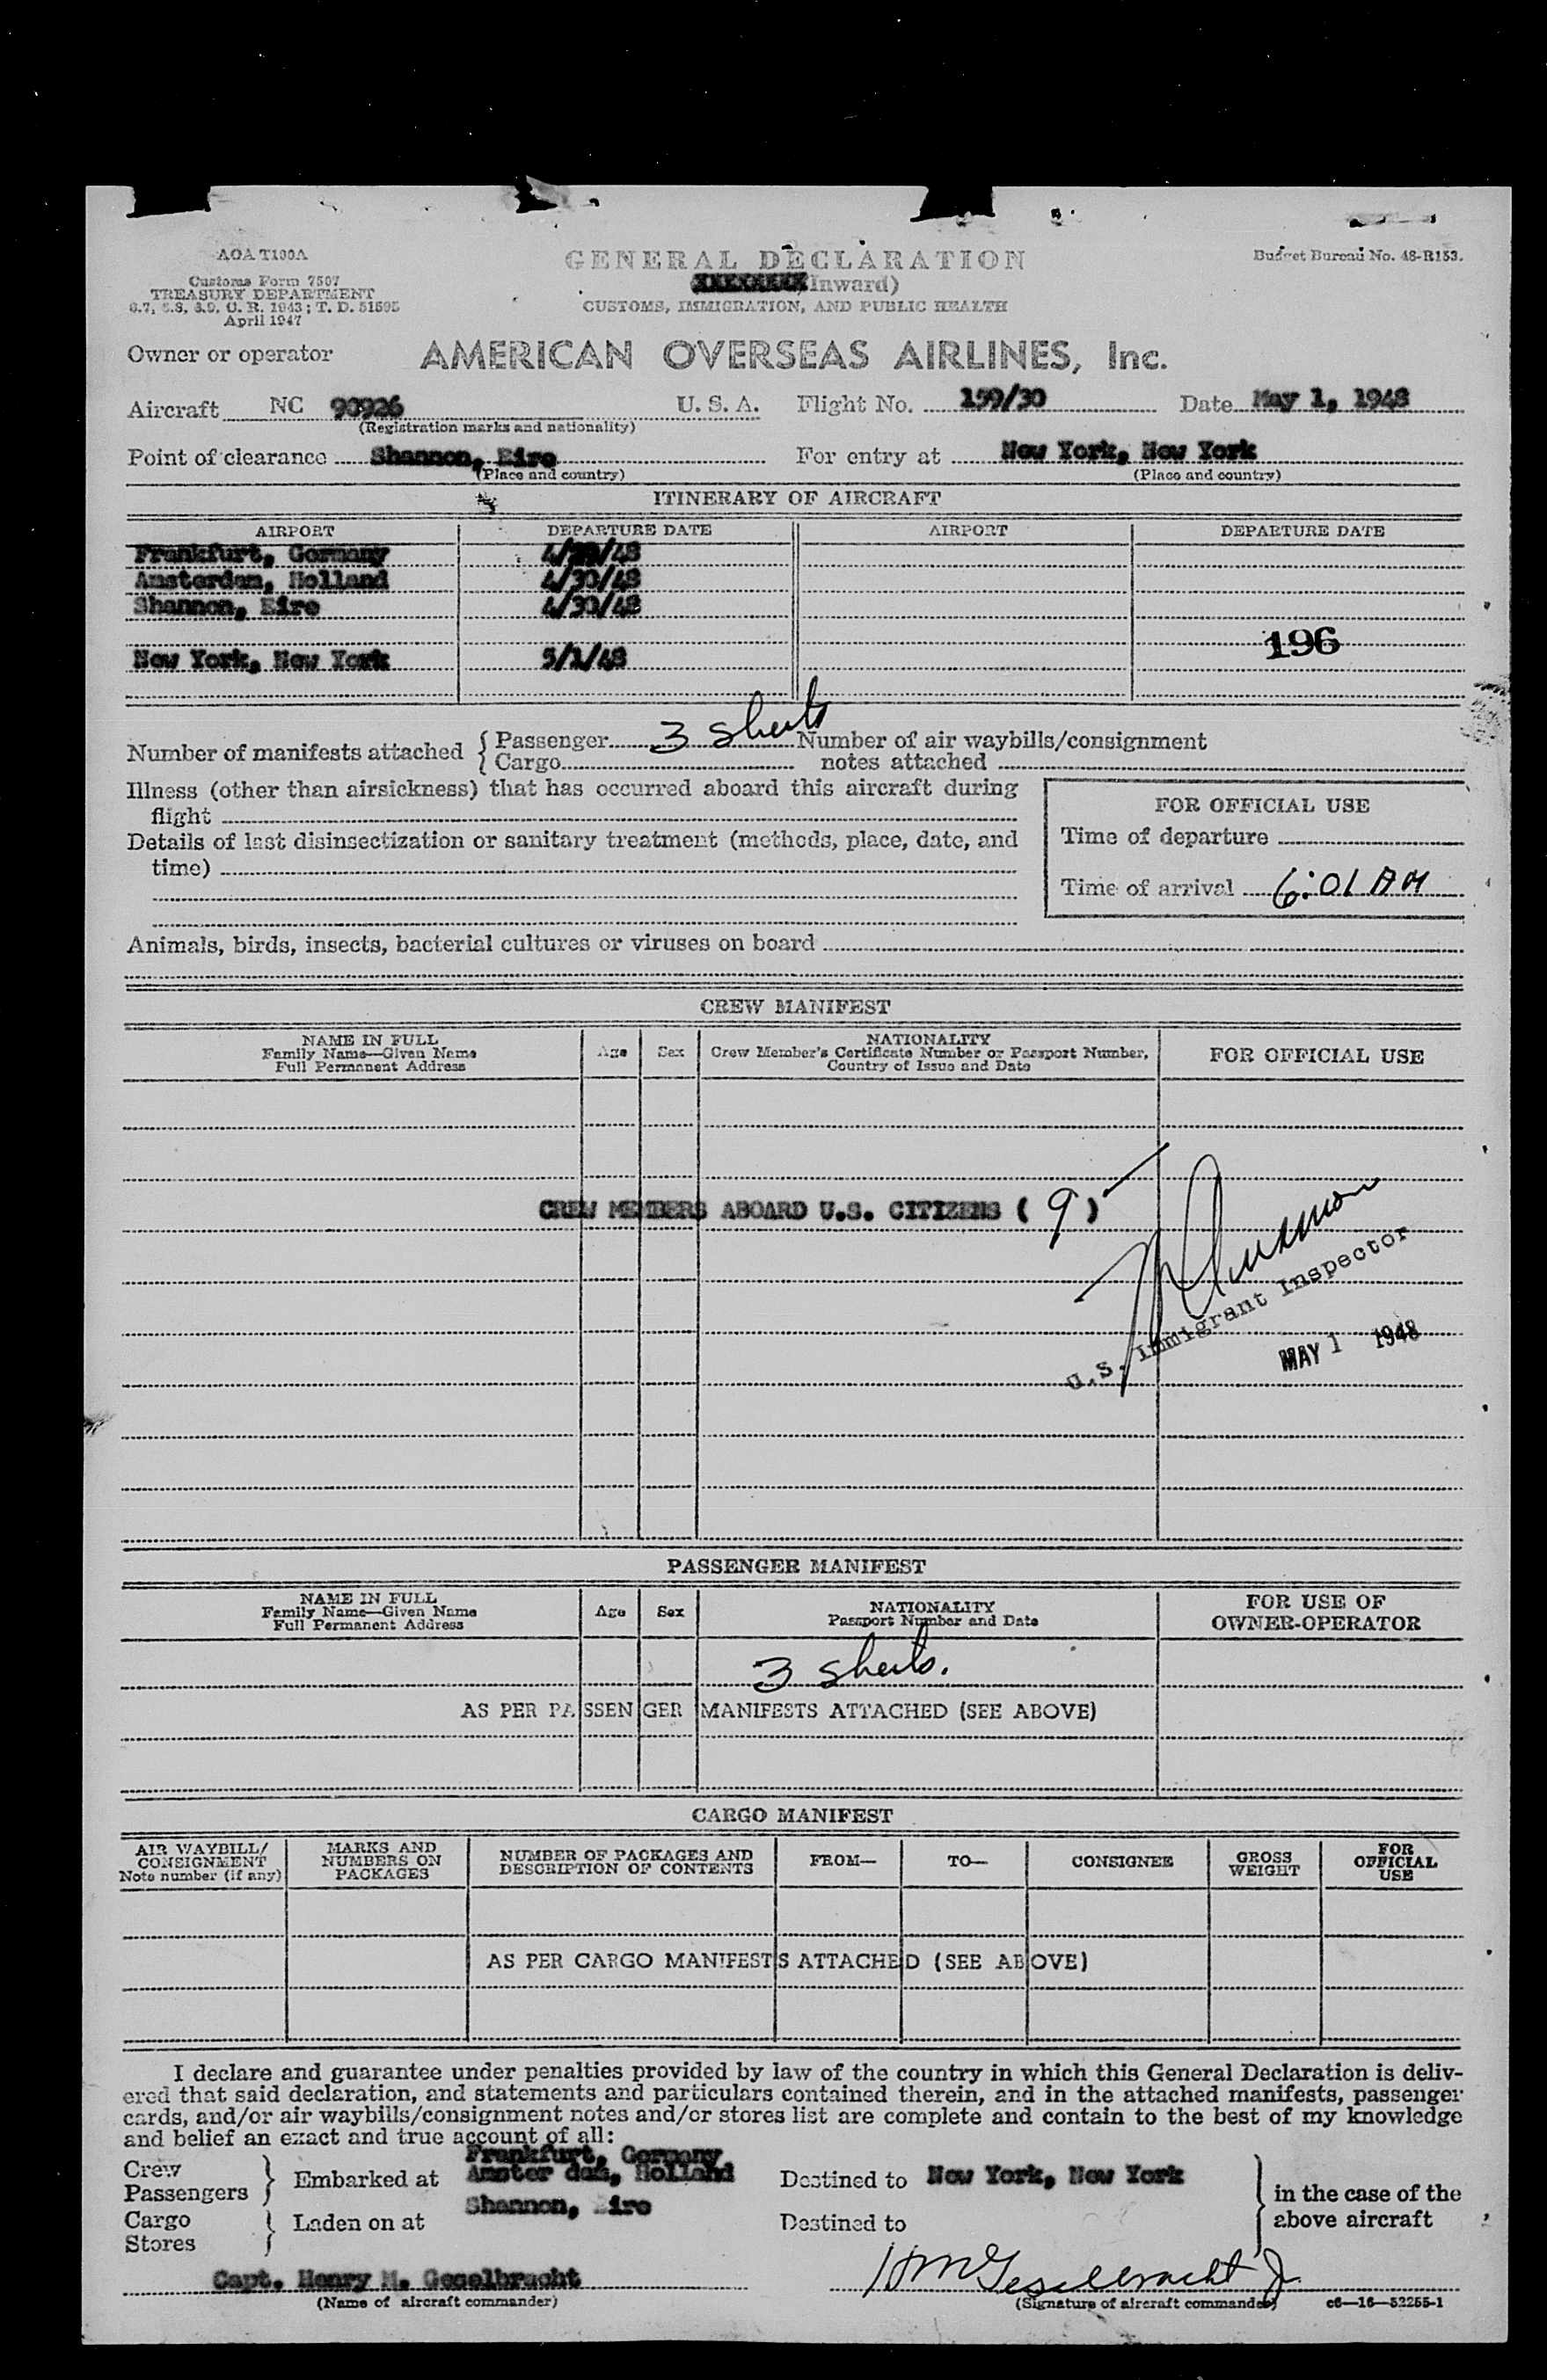 AOA T100A
Customs Form 7507
TREASURY DEPARTMENT
6.7, 6.8, 6.9, C. R. 1943; T. D. 51595
April 1947
GENERAL DECLARATION
Inward)
CUSTOMS, IMMIGRATION, AND PUBLIC HEALTH
Budget Bureau No. 48-R153.
Owner or operator AMERICAN OVERSEAS AIRLINES, Inc.
Aircraft NC 90926 U. S. A. Flight No. 159/30 Date May 1, 1948
(Registration marks and nationality)
Point of clearance Shannon, Eire For entry at New York, New York
(Place and country) (Place and country)
ITINERARY OF AIRCRAFT
AIRPORT DEPARTURE DATE AIRPORT DEPARTURE DATE
Frankfurt, Germany 4/29/48
Amsterdam, Holland 4/30/48
Shannon, Eire 4/30/48
196
New York, New York 5/1/48
Number of manifests attached { Passenger 3 sheets Number of air waybills/consignment
{ Cargo notes attached
Illness (other than airsickness) that has occurred aboard this aircraft during
flight
Details of last disinsectization or sanitary treatment (methods, place, date, and
time)
FOR OFFICIAL USE
Time of departure
Time of arrival 6:01 AM
Animals, birds, insects, bacterial cultures or viruses on board
CREW MANIFEST
NAME IN FULL
Family Name—Given Name
Full Permanent Address
Age
Sex
NATIONALITY
Crew Member's Certificate Number or Passport Number,
Country of Issue and Date
FOR OFFICIAL USE
CREW MEMBERS ABOARD U.S. CITIZENS ( 9 )
U.S. Immigrant Inspector
MAY 1 1948
PASSENGER MANIFEST
NAME IN FULL
Family Name—Given Name
Full Permanent Address
Age
Sex
NATIONALITY
Passport Number and Date
FOR USE OF
OWNER-OPERATOR
3 sheets.
AS PER PASSENGER MANIFESTS ATTACHED (SEE ABOVE)
CARGO MANIFEST
AIR WAYBILL/
CONSIGNMENT
Note number (if any)
MARKS AND
NUMBERS ON
PACKAGES
NUMBER OF PACKAGES AND
DESCRIPTION OF CONTENTS
FROM—
TO—
CONSIGNEE
GROSS
WEIGHT
FOR
OFFICIAL
USE
AS PER CARGO MANIFESTS ATTACHED (SEE ABOVE)
I declare and guarantee under penalties provided by law of the country in which this General Declaration is deliv-
ered that said declaration, and statements and particulars contained therein, and in the attached manifests, passenger
cards, and/or air waybills/consignment notes and/or stores list are complete and contain to the best of my knowledge
and belief an exact and true account of all:
Frankfurt, Germany
Crew
Passengers } Embarked at Amster dam, Holland Destined to New York, New York
Shannon, Eire
Cargo
Stores } Laden on at Destined to
} in the case of the
above aircraft
Capt. Henry M. Geselbracht HM Geselbracht Jr
(Name of aircraft commander) (Signature of aircraft commander) c6—16—52255-1